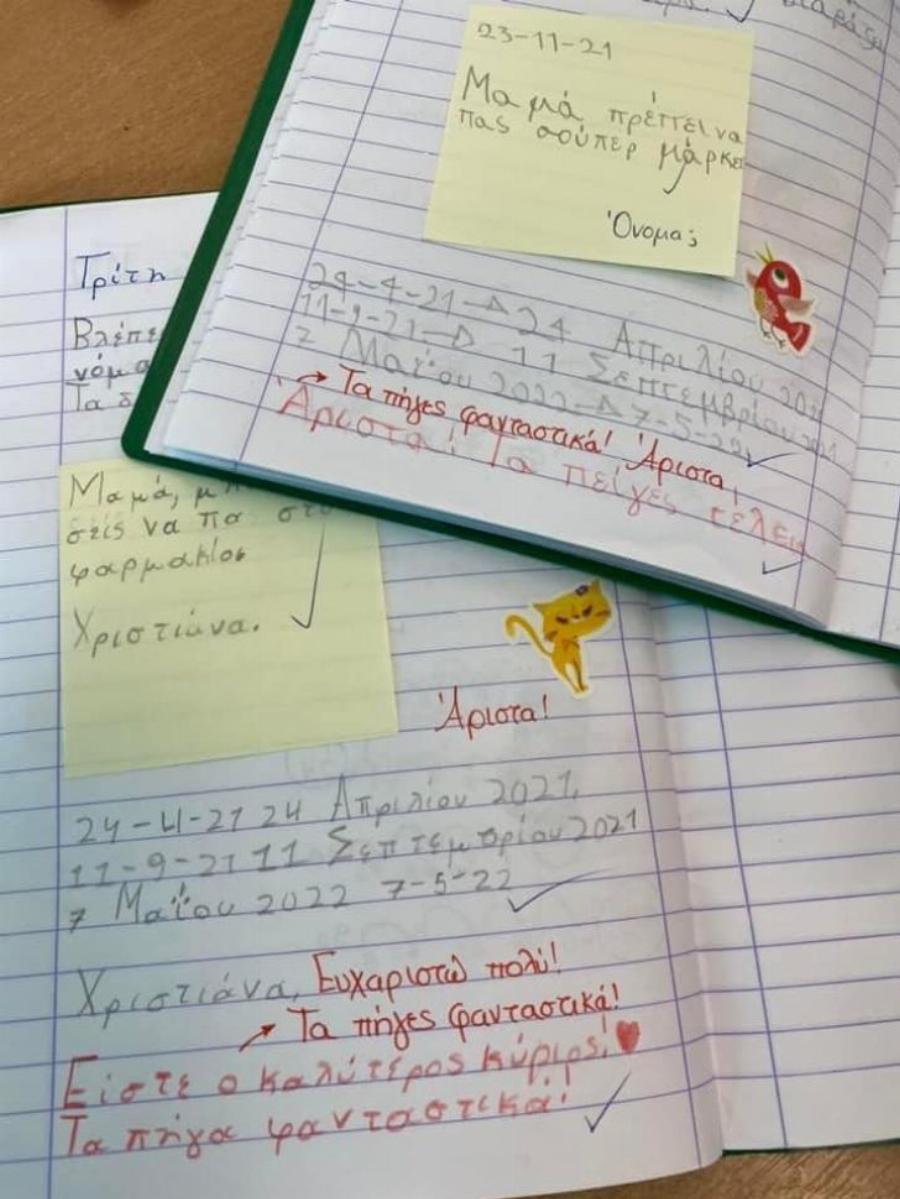 23-11-21
Μαμά πρέπει να
πας σούπερ μάρκε
Όνομα;
24-4-21-Δ 24 Απριλίου 202
11-9-21-Δ 11 Σεπτεμβρίου 2021
7 Μαΐου 2022-Δ 7-5-22
→ Τα πήγες φανταστικά! Άριστα!
Άριστα! Τα πείγες τέλεια
Τρίτη
Βλέπε
νόμα
Τα δ
Μαμά, μπ
στείς να πα στο
φαρμακίο
Χριστιάνα.
Άριστα!
24-4-21 24 Απριλίου 2021,
11-9-21 11 Σεπτεμβρίου 2021
7 Μαΐου 2022 7-5-22
Χριστιάνα, Ευχαριστώ πολύ!
→ Τα πήγες φανταστικά!
Είστε ο καλύτερος κύριος!
Τα πήγα φανταστικά!